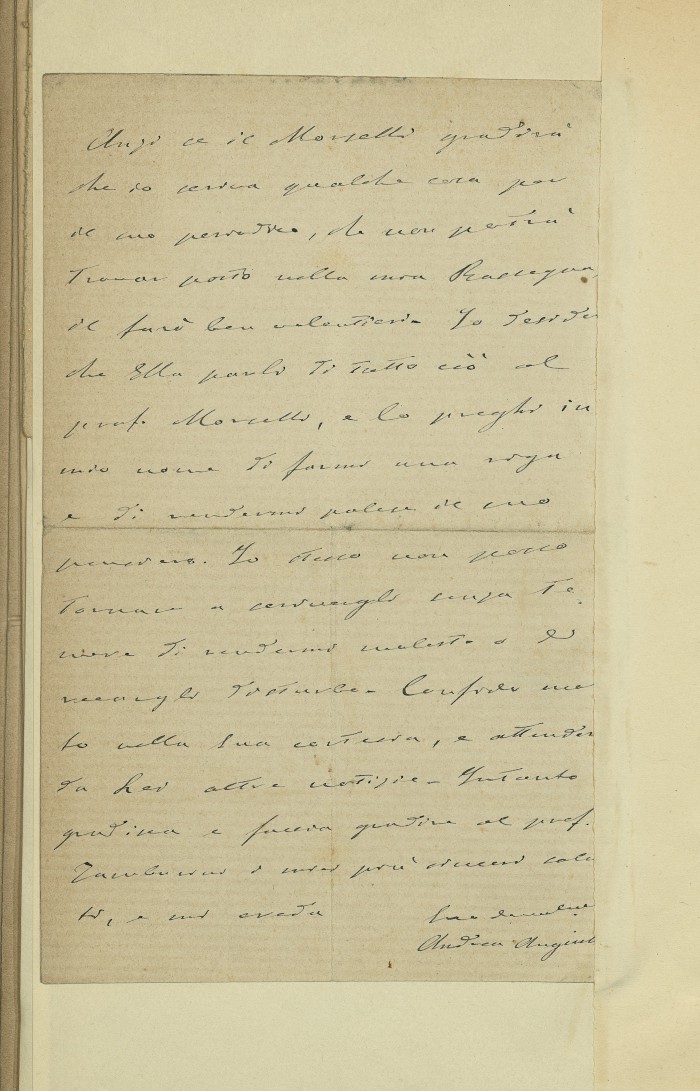 Anzi se il Morselli gradirà
che io scriva qualche cosa per
il suo periodico, che non potrà
trovar posto nella mia Rassegna,
il farò ben volentieri. Io deside
che Ella parli di tutto ciò al
prof. Morselli, e lo preghi in
mio nome di farmi una riga
e di rendermi palese il suo
pensiero. Io stesso non posso
tornare a scrivergli senza te
mere di rendermi molesto o di
recargli disturbo. Confido mo
to nella sua cortesia, e attender
da Lei altre notizie. Intanto
gradisca e faccia gradire al prof.
Tamburini i miei più sinceri salu
ti, e mi creda
Suo
Andrea Angiul